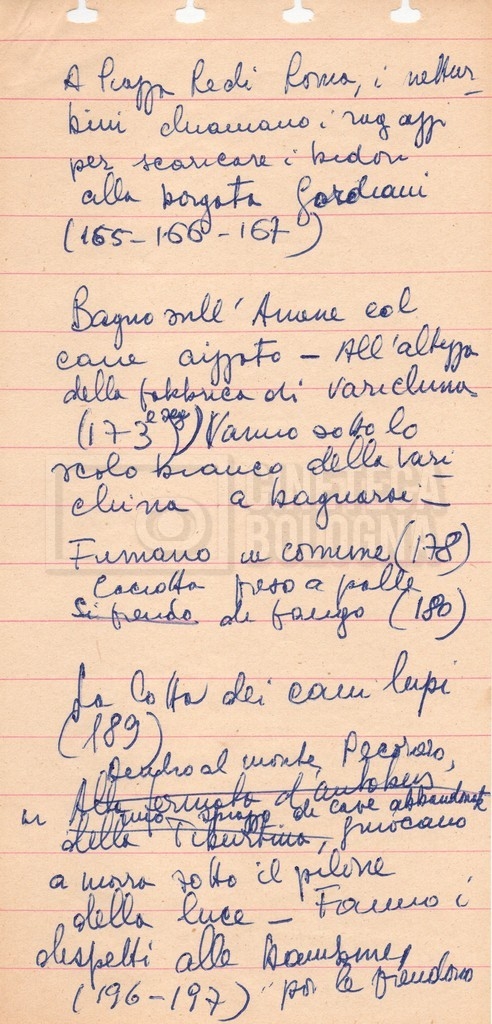 A Piazza Re di Roma, i nettur-
bini chiamano i ragazzi
per scaricare i bidoni
alla borgata Gordiani
(165-166-167)
Bagno sull'Aniene col
cane aizzato - All'altezza
della fabbrica di varichina
(173 e seg) Vanno sotto lo
scolo bianco della vari
china a bagnarsi -
Fumano in comune (178)
Caciotta preso a palle
Si prendo di fango (180)
La lotta dei cani lupi
(189)
Dentro al monte Pecoraro,
Alla fermata d'autobus
in uno spiazzo di cave abbandonate
della Tiburtina, giuocano
a morra sotto il pilone
della luce - Fanno i
dispetti alle bambine,
(196-197) poi le prendono
CINETECA
BOLOGNA